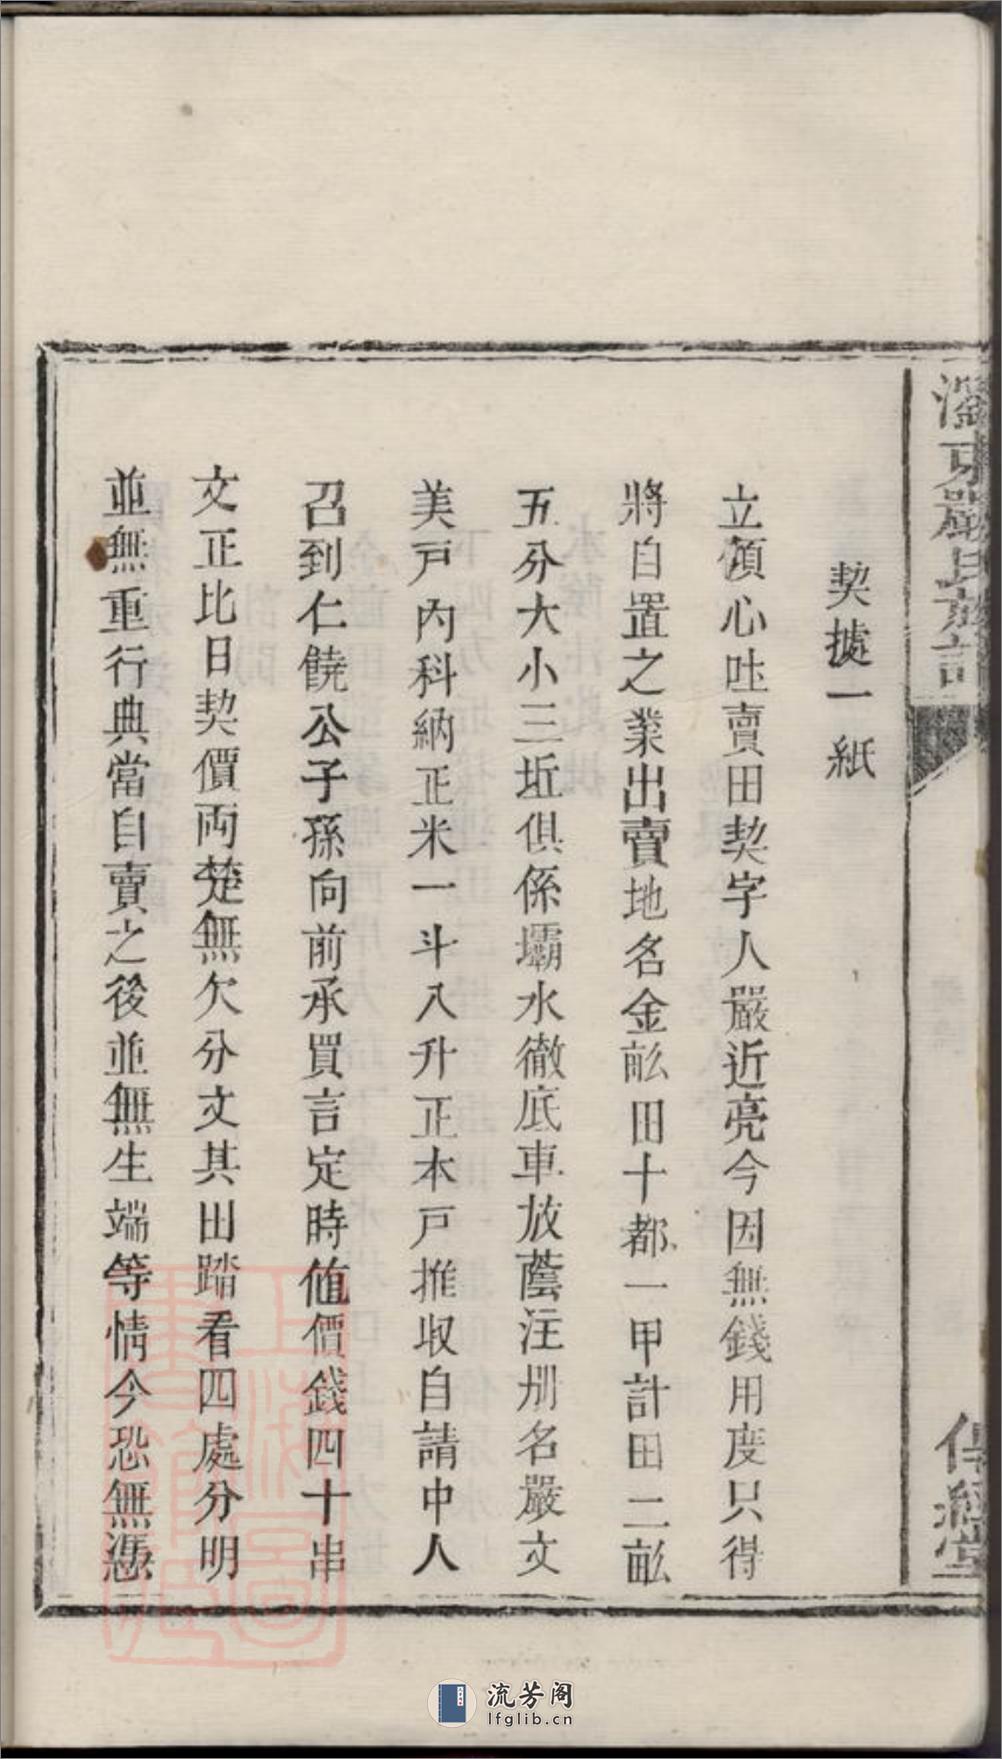 契㨿一紙
立傾心吐賣田契字人嚴近亮今因無錢用度只得
將自置之業出賣地名金畝田十都一甲計田二畝
五分大小三坵俱係壩水徹底車放蔭注册名嚴文
美戸內科納正米一斗八升正本戸推収自請中人
召到仁饒公子孫向前承買言定時値價錢四十串
文正比日契價両楚無欠分文其田踏看四處分明
並無重行典當自賣之後並無生端等情今恐無憑
東嚴氏族
經堂
上海圖書館藏
流芳阁
lfglib.cn